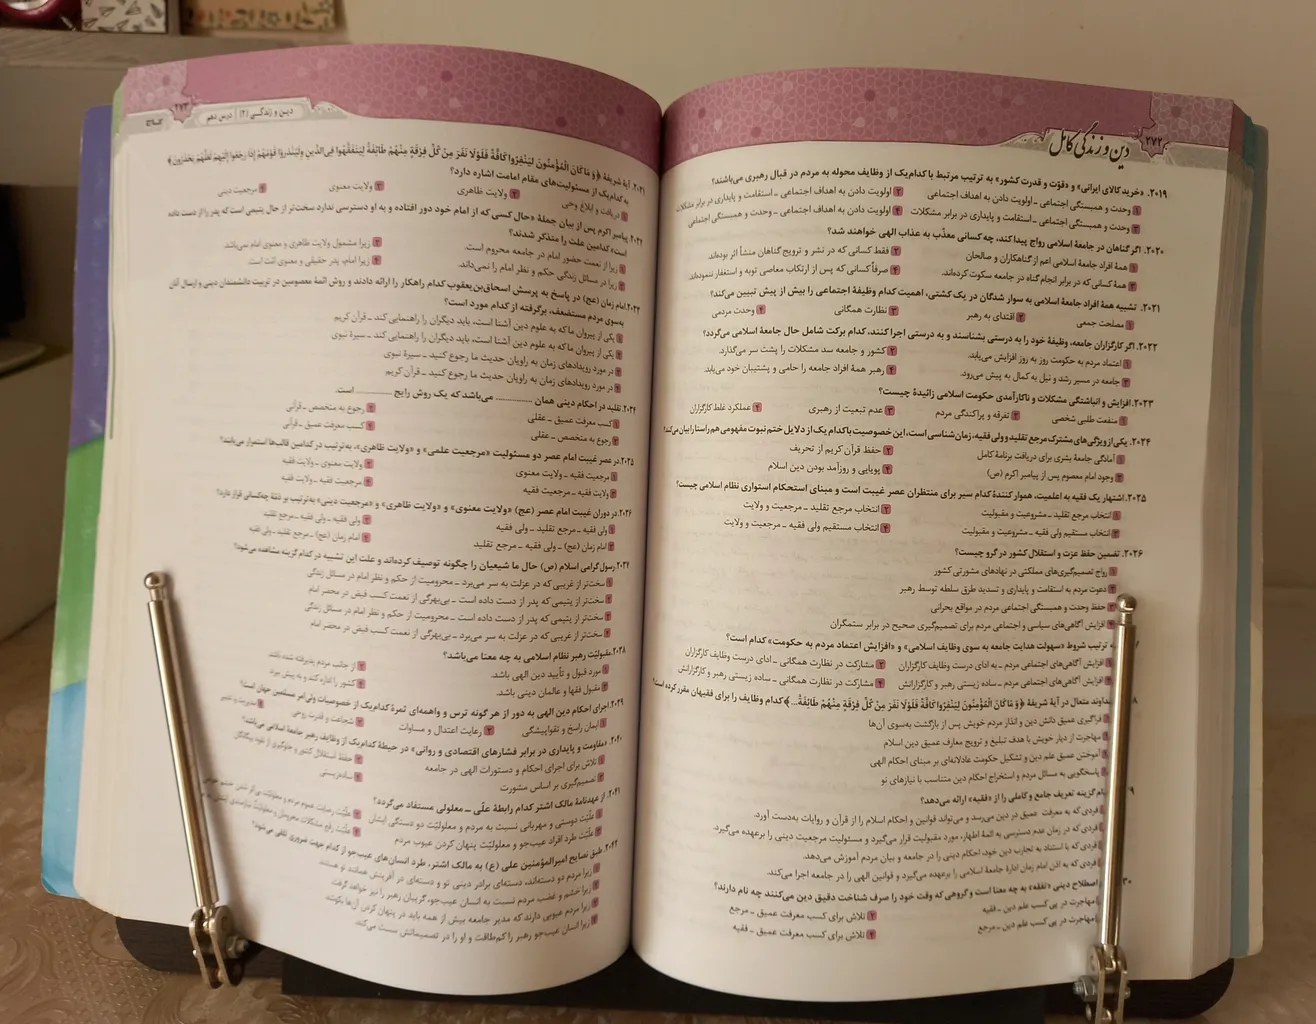 ۲۷۲
دین و زندگی کامل
۲۰۱۹. «خرید کالای ایرانی» و «قوّت و قدرت کشور» به ترتیب مرتبط با کدام‌یک از وظایف محوله به مردم در قبال رهبری می‌باشند؟
۱ وحدت و همبستگی اجتماعی ـ اولویت دادن به اهداف اجتماعی ۲ اولویت دادن به اهداف اجتماعی ـ استقامت و پایداری در برابر مشکلات
۳ وحدت و همبستگی اجتماعی ـ استقامت و پایداری در برابر مشکلات ۴ اولویت دادن به اهداف اجتماعی ـ وحدت و همبستگی اجتماعی
۲۰۲۰. اگر گناهان در جامعهٔ اسلامی رواج پیدا کند، چه کسانی معذّب به عذاب الهی خواهند شد؟
۱ همهٔ افراد جامعهٔ اسلامی اعم از گناهکاران و صالحان ۲ فقط کسانی که در نشر و ترویج گناهان منشأ اثر بوده‌اند
۳ همهٔ کسانی که در برابر انجام گناه در جامعه سکوت کرده‌اند. ۴ صرفاً کسانی که پس از ارتکاب معاصی توبه و استغفار ننموده‌اند.
۲۰۲۱. تشبیه همهٔ افراد جامعهٔ اسلامی به سوار شدگان در یک کشتی، اهمیت کدام وظیفهٔ اجتماعی را بیش از پیش تبیین می‌کند؟
۱ مصلحت جمعی ۲ اقتدای به رهبر ۳ نظارت همگانی ۴ وحدت مردمی
۲۰۲۲. اگر کارگزاران جامعه، وظیفهٔ خود را به درستی بشناسند و به درستی اجرا کنند، کدام برکت شامل حال جامعهٔ اسلامی می‌گردد؟
۱ اعتماد مردم به حکومت روز به روز افزایش می‌یابد. ۲ کشور و جامعه سد مشکلات را پشت سر می‌گذارد.
۳ جامعه در مسیر رشد و نیل به کمال به پیش می‌رود. ۴ رهبر همهٔ افراد جامعه را حامی و پشتیبان خود می‌یابد.
۲۰۲۳. افزایش و انباشتگی مشکلات و ناکارآمدی حکومت اسلامی زائیدهٔ چیست؟
۱ منفعت طلبی شخصی ۲ تفرقه و پراکندگی مردم ۳ عدم تبعیت از رهبری ۴ عملکرد غلط کارگزاران
۲۰۲۴. یکی از ویژگی‌های مشترک مرجع تقلید و ولی فقیه، زمان‌شناسی است، این خصوصیت با کدام یک از دلایل ختم نبوت مفهومی هم راستا را بیان می‌کند؟
۱ آمادگی جامعهٔ بشری برای دریافت برنامهٔ کامل ۲ حفظ قرآن کریم از تحریف
۳ وجود امام معصوم پس از پیامبر اکرم (ص) ۴ پویایی و روزآمد بودن دین اسلام
۲۰۲۵. اشتهار یک فقیه به اعلمیت، هموار کنندهٔ کدام سیر برای منتظران عصر غیبت است و مبنای استحکام استواری نظام اسلامی چیست؟
۱ انتخاب مرجع تقلید ـ مشروعیت و مقبولیت ۲ انتخاب مرجع تقلید ـ مرجعیت و ولایت
۳ انتخاب مستقیم ولی فقیه ـ مشروعیت و مقبولیت ۴ انتخاب مستقیم ولی فقیه ـ مرجعیت و ولایت
۲۰۲۶. تضمین حفظ عزت و استقلال کشور در گرو چیست؟
۱ رواج تصمیم‌گیری‌های مملکتی در نهادهای مشورتی کشور
۲ دعوت مردم به استقامت و پایداری و تسدید طرق سلطه توسط رهبر
۳ حفظ وحدت و همبستگی اجتماعی مردم در مواقع بحرانی
افزایش آگاهی‌های سیاسی و اجتماعی مردم برای تصمیم‌گیری صحیح در برابر ستمگران
به ترتیب شروط «سهولت هدایت جامعه به سوی وظایف اسلامی» و «افزایش اعتماد مردم به حکومت» کدام است؟
افزایش آگاهی‌های اجتماعی مردم ـ به ادای درست وظایف کارگزاران ۲ مشارکت در نظارت همگانی ـ ادای درست وظایف کارگزاران
افزایش آگاهی‌های اجتماعی مردم ـ ساده زیستی رهبر و کارگزارانش ۴ مشارکت در نظارت همگانی ـ ساده زیستی رهبر و کارگزارانش
خداوند متعال در آیهٔ شریفهٔ ﴿وَ مَا كَانَ الْمُؤْمِنُونَ لِيَنْفِرُوا كَافَّةً فَلَوْلَا نَفَرَ مِنْ كُلِّ فِرْقَةٍ مِنْهُمْ طَائِفَةٌ...﴾ کدام وظایف را برای فقیهان مقرر کرده است؟
فراگیری عمیق دانش دین و انذار مردم خویش پس از بازگشت به‌سوی آن‌ها
مهاجرت از دیار خویش با هدف تبلیغ و ترویج معارف عمیق دین اسلام
آموختن عمیق علم دین و تشکیل حکومت عادلانه‌ای بر مبنای احکام الهی
پاسخگویی به مسائل مردم و استخراج احکام دین متناسب با نیازهای نو
کدام گزینه تعریف جامع و کاملی را از «فقیه» ارائه می‌دهد؟
فردی که به معرفت عمیق در دین می‌رسد و می‌تواند قوانین و احکام اسلام را از قرآن و روایات به‌دست آورد.
فردی که در زمان عدم دسترسی به ائمهٔ اطهار، مورد مقبولیت قرار می‌گیرد و مسئولیت مرجعیت دینی را برعهده می‌گیرد.
فردی که با استناد به تجارب دین خود، احکام دینی را در جامعه و بیان مردم آموزش می‌دهد.
فردی که به اذن امام زمان ادارهٔ جامعهٔ اسلامی را برعهده می‌گیرد و قوانین الهی را در جامعه اجرا می‌کند.
اصطلاح دینی «تفقه» به چه معنا است و گروهی که وقت خود را صرف شناخت دقیق دین می‌کنند چه نام دارند؟
مهاجرت در پی کسب علم دین ـ فقیه ۲ تلاش برای کسب معرفت عمیق ـ مرجع
مهاجرت در پی کسب علم دین ـ مرجع ۴ تلاش برای کسب معرفت عمیق ـ فقیه
دین و زندگی (۲) | درس دهم
۲۷۳
۲۰۳۱. آیهٔ شریفهٔ ﴿وَ مَا كَانَ الْمُؤْمِنُونَ لِيَنْفِرُوا كَافَّةً فَلَوْلَا نَفَرَ مِنْ كُلِّ فِرْقَةٍ مِنْهُمْ طَائِفَةٌ لِيَتَفَقَّهُوا فِي الدِّينِ وَلِيُنْذِرُوا قَوْمَهُمْ إِذَا رَجَعُوا إِلَيْهِمْ لَعَلَّهُمْ يَحْذَرُونَ﴾
به کدام‌یک از مسئولیت‌های مقام امامت اشاره دارد؟
۱ دریافت و ابلاغ وحی ۲ ولایت ظاهری ۳ ولایت معنوی ۴ مرجعیت دینی
۲۰۳۲. پیامبر اکرم پس از بیان جملهٔ «حال کسی که از امام خود دور افتاده و به او دسترسی ندارد سخت‌تر از حال یتیمی است که پدر را از دست داده
است» کدامین علت را متذکر شدند؟
۱ زیرا از نعمت حضور امام در جامعه محروم است. ۲ زیرا مشمول ولایت ظاهری و معنوی امام نمی‌باشد.
۳ زیرا در مسائل زندگی حکم و نظر امام را نمی‌داند. ۴ زیرا امام، پدر حقیقی و معنوی امّت است.
۲۰۳۳. امام زمان (عج) در پاسخ به پرسش اسحاق‌بن‌یعقوب کدام راهکار را ارائه دادند و روش ائمهٔ معصومین در تربیت دانشمندان دینی و ارسال آنان
به‌سوی مردم مستضعف، برگرفته از کدام مورد است؟
۱ یکی از پیروان ما که به علوم دین آشنا است، باید دیگران را راهنمایی کند ـ قرآن کریم
۲ یکی از پیروان ما که به علوم دین آشنا است، باید دیگران را راهنمایی کند ـ سیرهٔ نبوی
۳ در مورد رویدادهای زمان به راویان حدیث ما رجوع کنید ـ سیرهٔ نبوی
۴ در مورد رویدادهای زمان به راویان حدیث ما رجوع کنید ـ قرآن کریم
۲۰۳۴. تقلید در احکام دینی همان .............. می‌باشد که یک روش رایج .............. است.
۱ کسب معرفت عمیق ـ عقلی ۲ رجوع به متخصص ـ قرآنی
۳ رجوع به متخصص ـ عقلی ۴ کسب معرفت عمیق ـ قرآنی
۲۰۳۵. در عصر غیبت امام عصر دو مسئولیت «مرجعیت علمی» و «ولایت ظاهری»، به‌ترتیب در کدامین قالب‌ها استمرار می‌یابند؟
۱ مرجعیت فقیه ـ ولایت معنوی ۲ ولایت معنوی ـ ولایت فقیه
۳ ولایت فقیه ـ مرجعیت فقیه ۴ مرجعیت فقیه ـ ولایت فقیه
۲۰۳۶. در دوران غیبت امام عصر (عج) «ولایت معنوی» و «ولایت ظاهری» و «مرجعیت دینی» به‌ترتیب بر ذمّهٔ چه‌کسانی قرار دارد؟
۱ ولی فقیه ـ مرجع تقلید ـ ولی فقیه ۲ ولی فقیه ـ ولی فقیه ـ مرجع تقلید
۳ امام زمان (عج) ـ ولی فقیه ـ مرجع تقلید ۴ امام زمان (عج) ـ مرجع تقلید ـ ولی فقیه
۲۰۳۷. رسول گرامی اسلام (ص) حال ما شیعیان را چگونه توصیف کرده‌اند و علت این تشبیه در کدام گزینه مشاهده می‌شود؟
۱ سخت‌تر از غریبی که در عزلت به سر می‌برد ـ محرومیت از حکم و نظر امام در مسائل زندگی
۲ سخت‌تر از یتیمی که پدر از دست داده است ـ بی‌بهرگی از نعمت کسب فیض در محضر امام
۳ سخت‌تر از یتیمی که پدر از دست داده است ـ محرومیت از حکم و نظر امام در مسائل زندگی
۴ سخت‌تر از غریبی که در عزلت به سر می‌برد ـ بی‌بهرگی از نعمت کسب فیض در محضر امام
۲۰۳۸. مقبولیّت رهبر نظام اسلامی به چه معنا می‌باشد؟
۱ مورد قبول و تأیید دین الهی باشد. ۲ از جانب مردم پذیرفته شده باشد.
۳ مقبول فقها و عالمان دینی باشد. ۴ کشور را اداره کند و به پیش ببرد.
۲۰۳۹. اجرای احکام دین الهی به دور از هر گونه ترس و واهمه‌ای ثمرهٔ کدام‌یک از خصوصیات ولی‌امر مسلمین جهان است؟
۱ ایمان راسخ و تقواپیشگی ۲ رعایت اعتدال و مساوات ۳ شجاعت و قدرت روحی ۴ مدیریت و تدبیر
۲۰۴۰. «مقاومت و پایداری در برابر فشارهای اقتصادی و روانی» در حیطهٔ کدام‌یک از وظایف رهبر جامعهٔ اسلامی می‌باشد؟
۱ تلاش برای اجرای احکام و دستورات الهی در جامعه ۲ حفظ استقلال کشور و جلوگیری از نفوذ بیگانگان
۳ تصمیم‌گیری بر اساس مشورت ۴ ساده‌زیستی
۲۰۴۱. از عهدنامهٔ مالک اشتر کدام رابطهٔ علّی ـ معلولی مستفاد می‌گردد؟
۱ علّیّت دوستی و مهربانی نسبت به مردم و معلولیّت دو دستگی ایشان
۳ علّیّت طرد افراد عیب‌جو و معلولیّت پنهان کردن عیوب مردم
۲۰۴۲. طبق نصایح امیرالمؤمنین علی (ع) به مالک اشتر، طرد انسان‌های عیب‌جو از کدام جهت ضروری تلقی می‌شود؟
۱ زیرا مردم دو دسته‌اند، دسته‌ای برادر دینی تو و دسته‌ای در آفرینش همانند تو هستند
۲ زیرا خشم و غضب مردم نسبت به انسان عیب‌جو، گریبان رهبر را نیز خواهد گرفت.
۳ زیرا مردم عیوبی دارند که مدیر جامعه بیش از همه باید در پنهان کردن آن‌ها بکوشد.
۴ زیرا انسان عیب‌جو رهبر را کم‌طاقت و او را در تصمیماتش سست می‌کند.